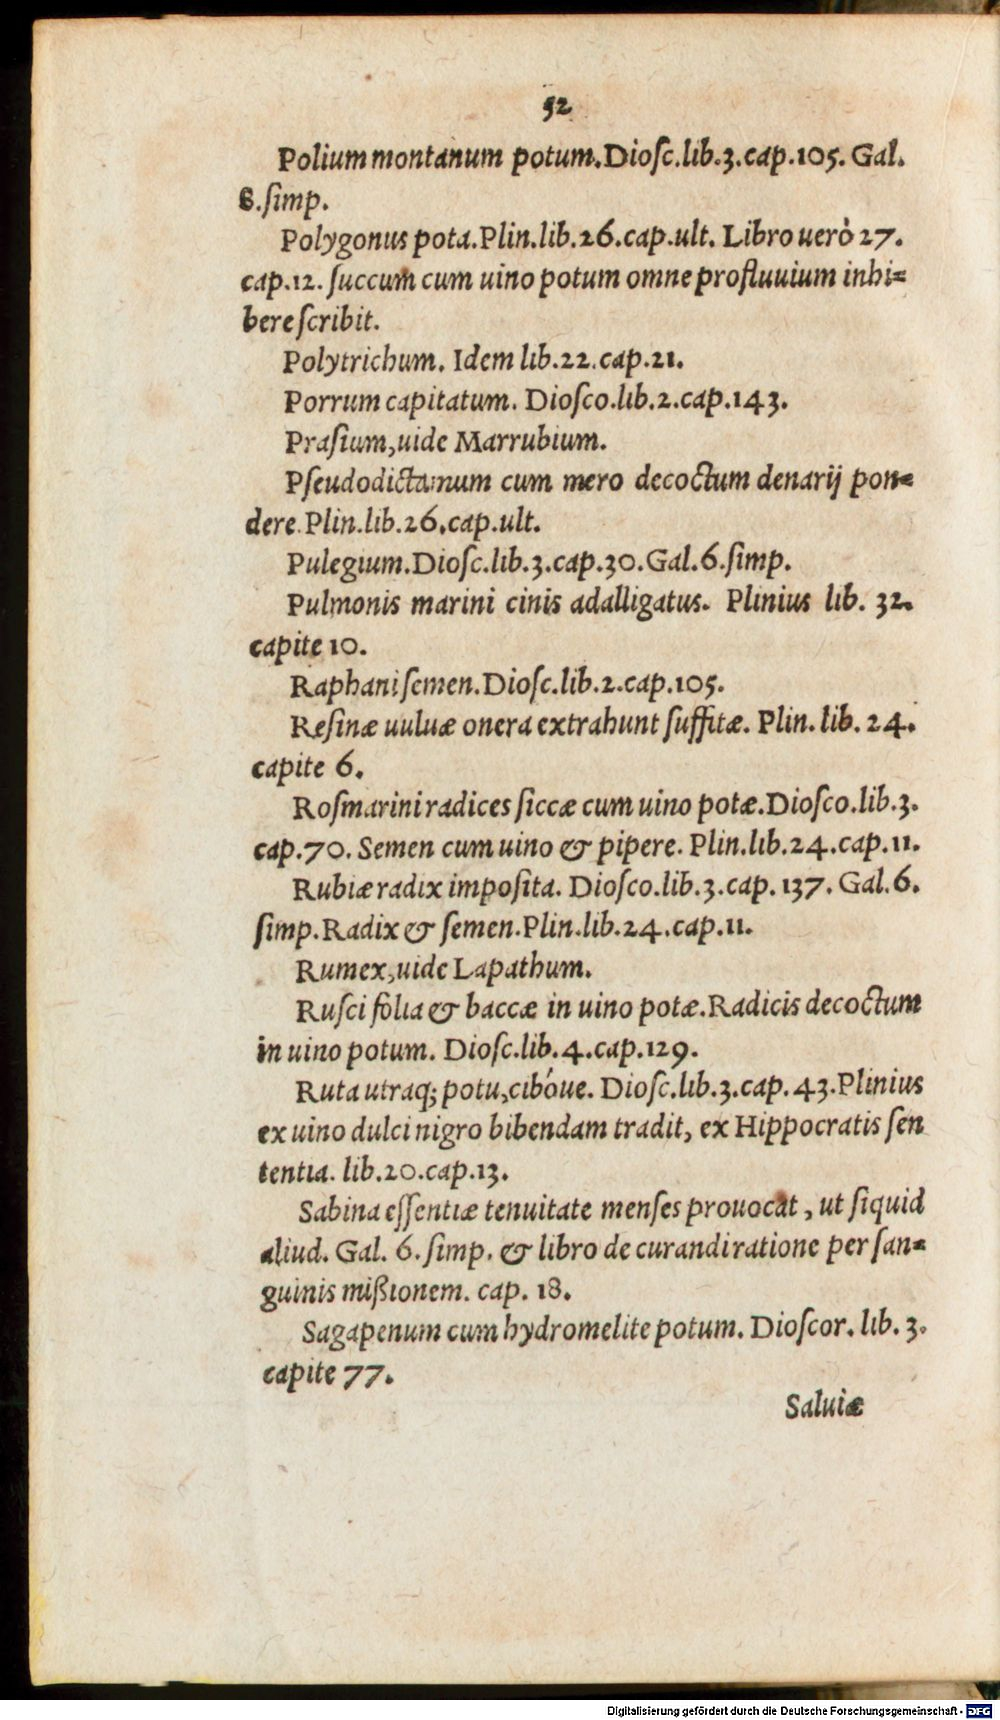 52
Polium montanum potum. Diosc. lib. 3. cap. 105. Gal.
8. simp.
Polygonus pota. Plin. lib. 26. cap. ult. Libro uerò 27.
cap. 12. succum cum uino potum omne profluuium inhi=
bere scribit.
Polytrichum. Idem lib. 22. cap. 21.
Porrum capitatum. Diosco. lib. 2. cap. 143.
Prasium, uide Marrubium.
Pseudodictamum cum mero decoctum denarij pon=
dere. Plin. lib. 26. cap. ult.
Pulegium. Diosc. lib. 3. cap. 30. Gal. 6. simp.
Pulmonis marini cinis adalligatus. Plinius lib. 32.
capite 10.
Raphani semen. Diosc. lib. 2. cap. 105.
Resinæ uuluæ onera extrahunt suffitæ. Plin. lib. 24.
capite 6.
Rosmarini radices siccæ cum uino potæ. Diosco. lib. 3.
cap. 70. Semen cum uino & pipere. Plin. lib. 24. cap. 11.
Rubiæ radix imposita. Diosco. lib. 3. cap. 137. Gal. 6.
simp. Radix & semen. Plin. lib. 24. cap. 11.
Rumex, uide Lapathum.
Rusci folia & baccæ in uino potæ. Radicis decoctum
in uino potum. Diosc. lib. 4. cap. 129.
Ruta utraq; potu, cibóue. Diosc. lib. 3. cap. 43. Plinius
ex uino dulci nigro bibendam tradit, ex Hippocratis sen
tentia. lib. 20. cap. 13.
Sabina essentiæ tenuitate menses prouocat, ut siquid
aliud. Gal. 6. simp. & libro de curandi ratione per san=
guinis mißionem. cap. 18.
Sagapenum cum hydromelite potum. Dioscor. lib. 3.
capite 77.
Saluiæ
Digitalisierung gefördert durch die Deutsche Forschungsgemeinschaft - DFG